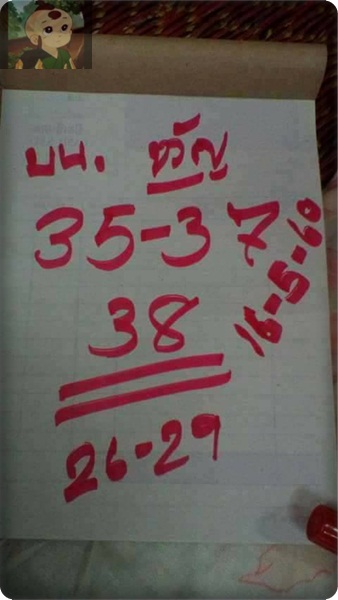 บน. ขวัญ
35-37
38
26-29
16-5-60